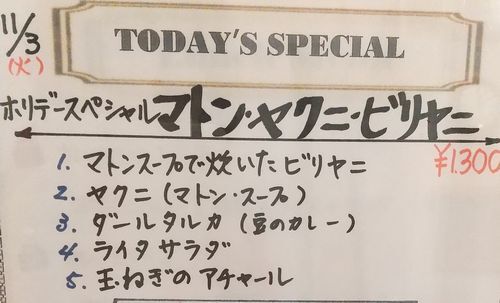 11/3
(火)
TODAY'S SPECIAL
ホリデースペシャル マトン・ヤクニ・ビリヤニ
¥1.300
1. マトンスープで炊いたビリヤニ
2. ヤクニ (マトン・スープ)
3. ダールタルカ (豆のカレー)
4. ライタサラダ
5. 玉ねぎのアチャール